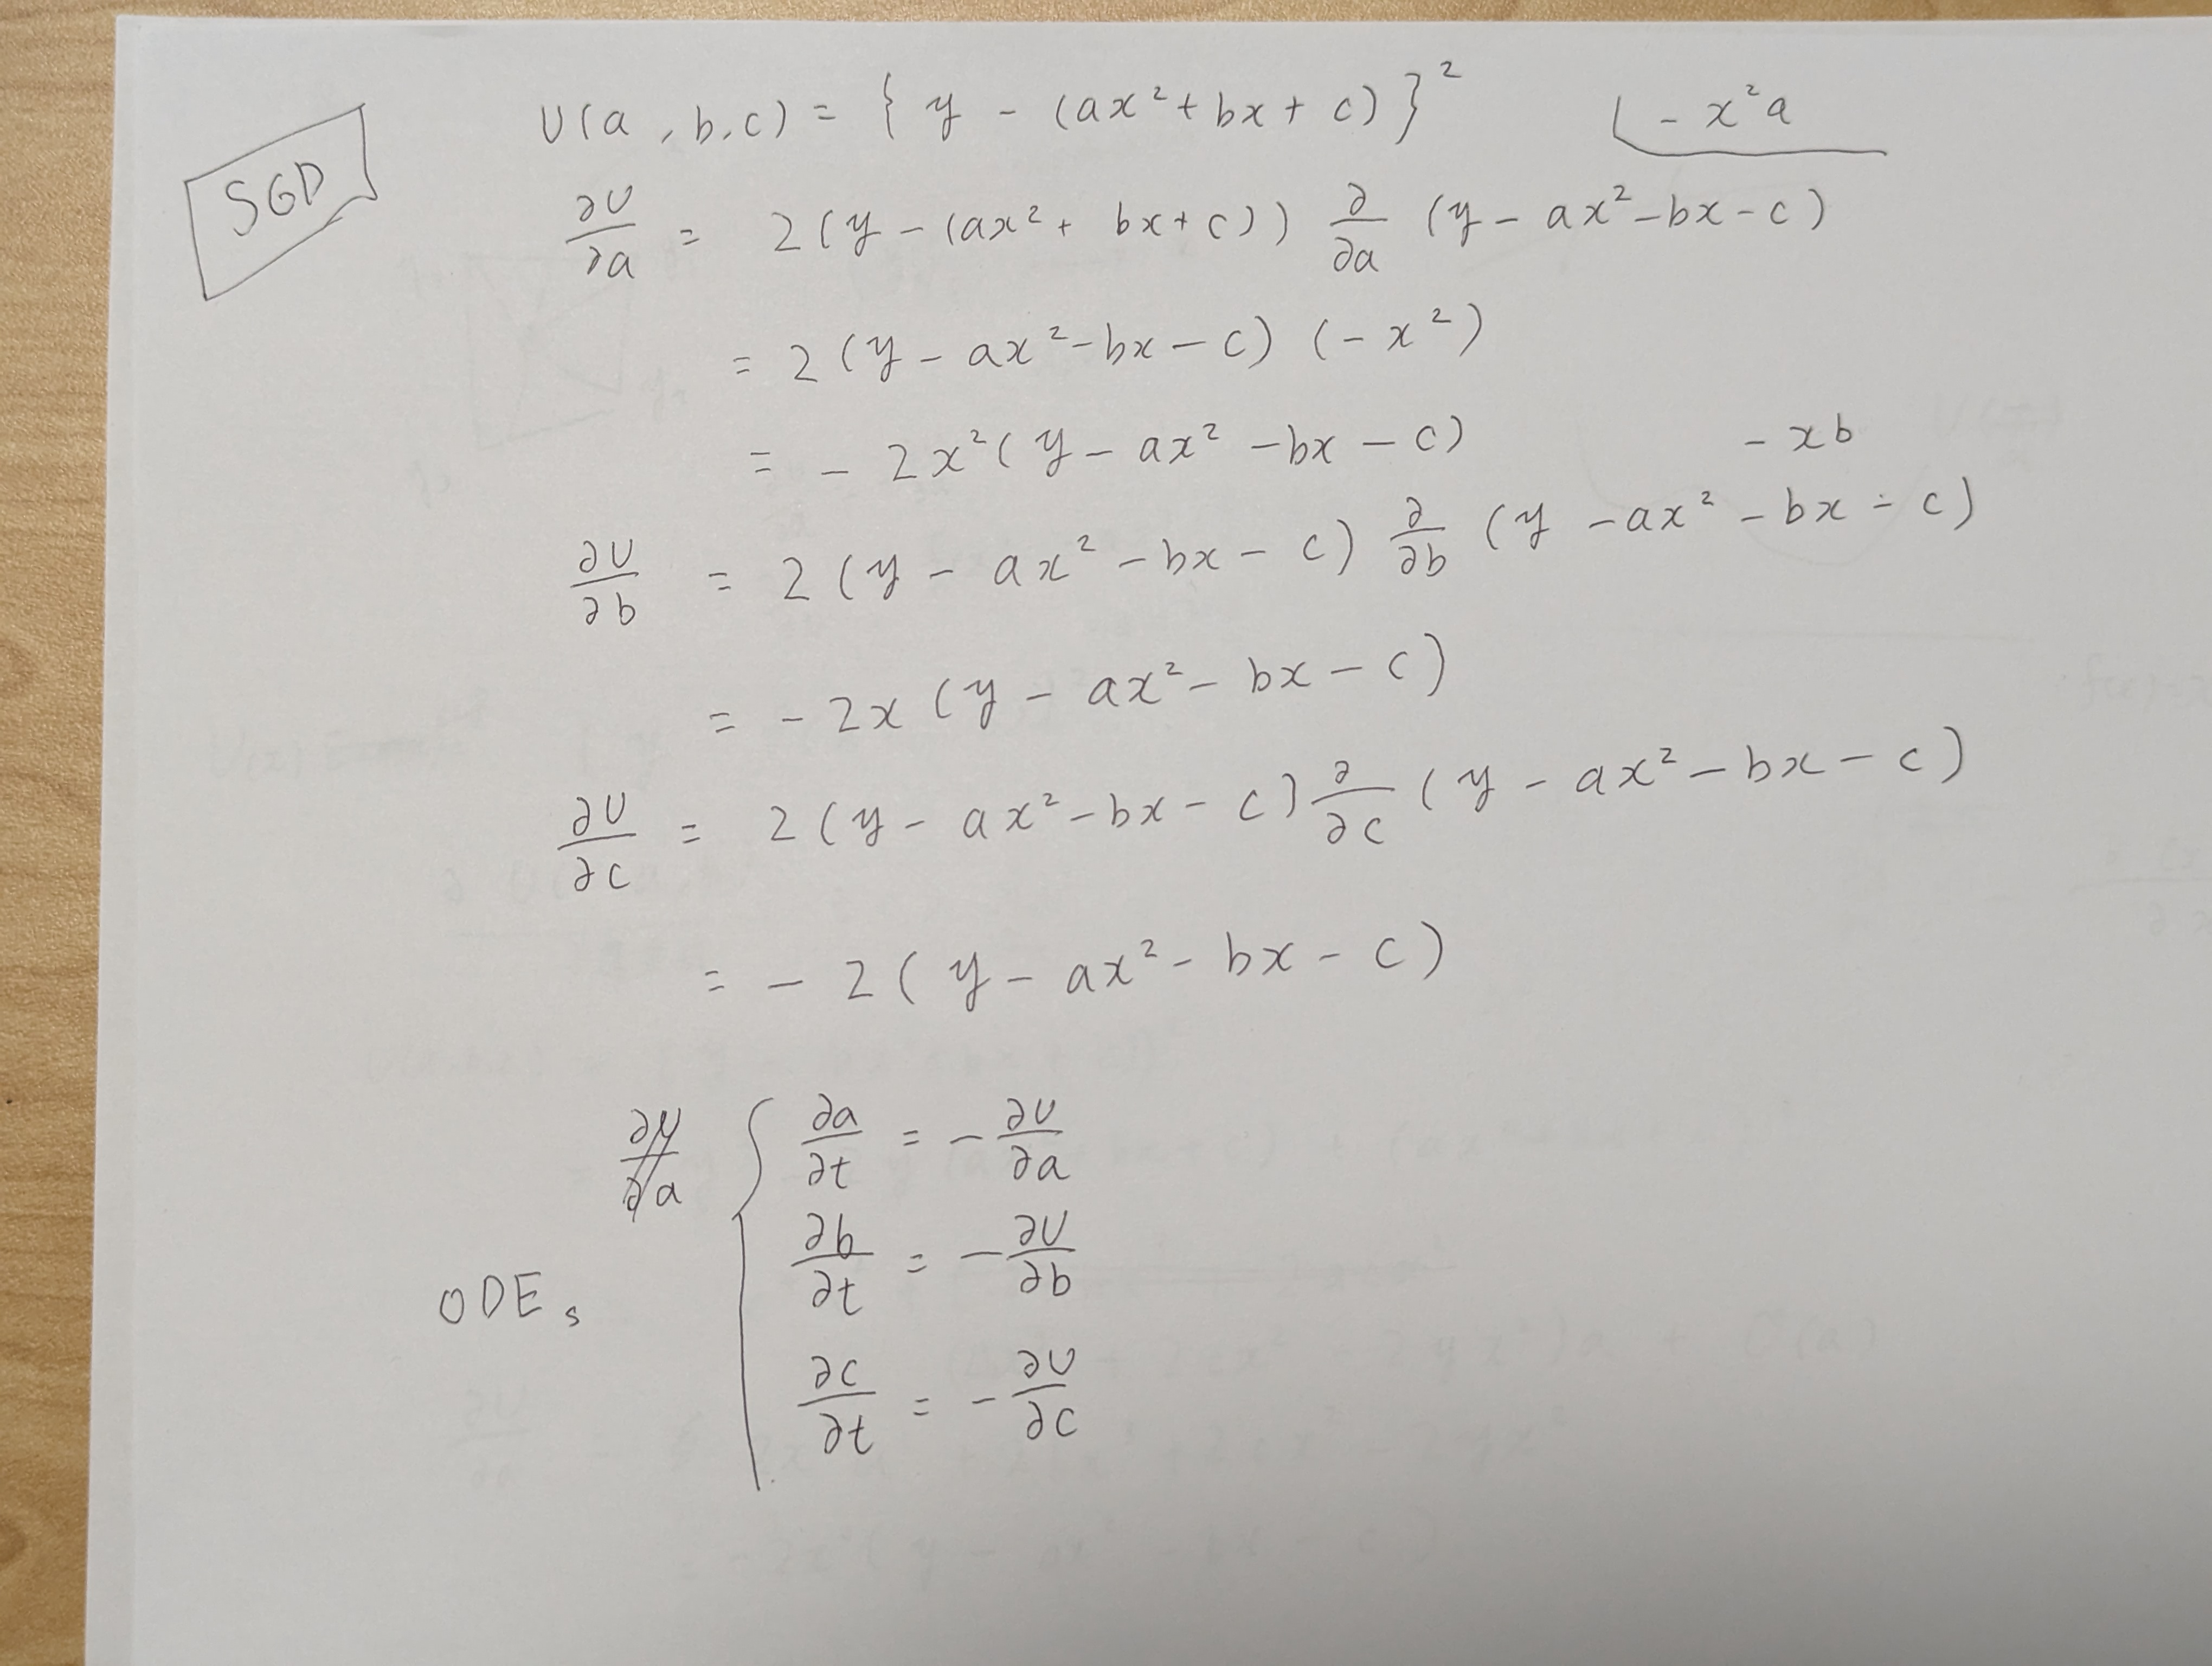 SGD
U(a, b, c) = { y - (ax² + bx + c) }²
- x²a
∂U/∂a = 2(y - (ax² + bx + c)) ∂/∂a (y - ax² - bx - c)
= 2(y - ax² - bx - c) (- x²)
= - 2x²(y - ax² - bx - c)
- xb
∂U/∂b = 2(y - ax² - bx - c) ∂/∂b (y - ax² - bx - c)
= - 2x(y - ax² - bx - c)
∂U/∂c = 2(y - ax² - bx - c) ∂/∂c (y - ax² - bx - c)
= - 2(y - ax² - bx - c)
∂U/∂a
∂a/∂t = - ∂U/∂a
∂b/∂t = - ∂U/∂b
ODEs
∂c/∂t = - ∂U/∂c